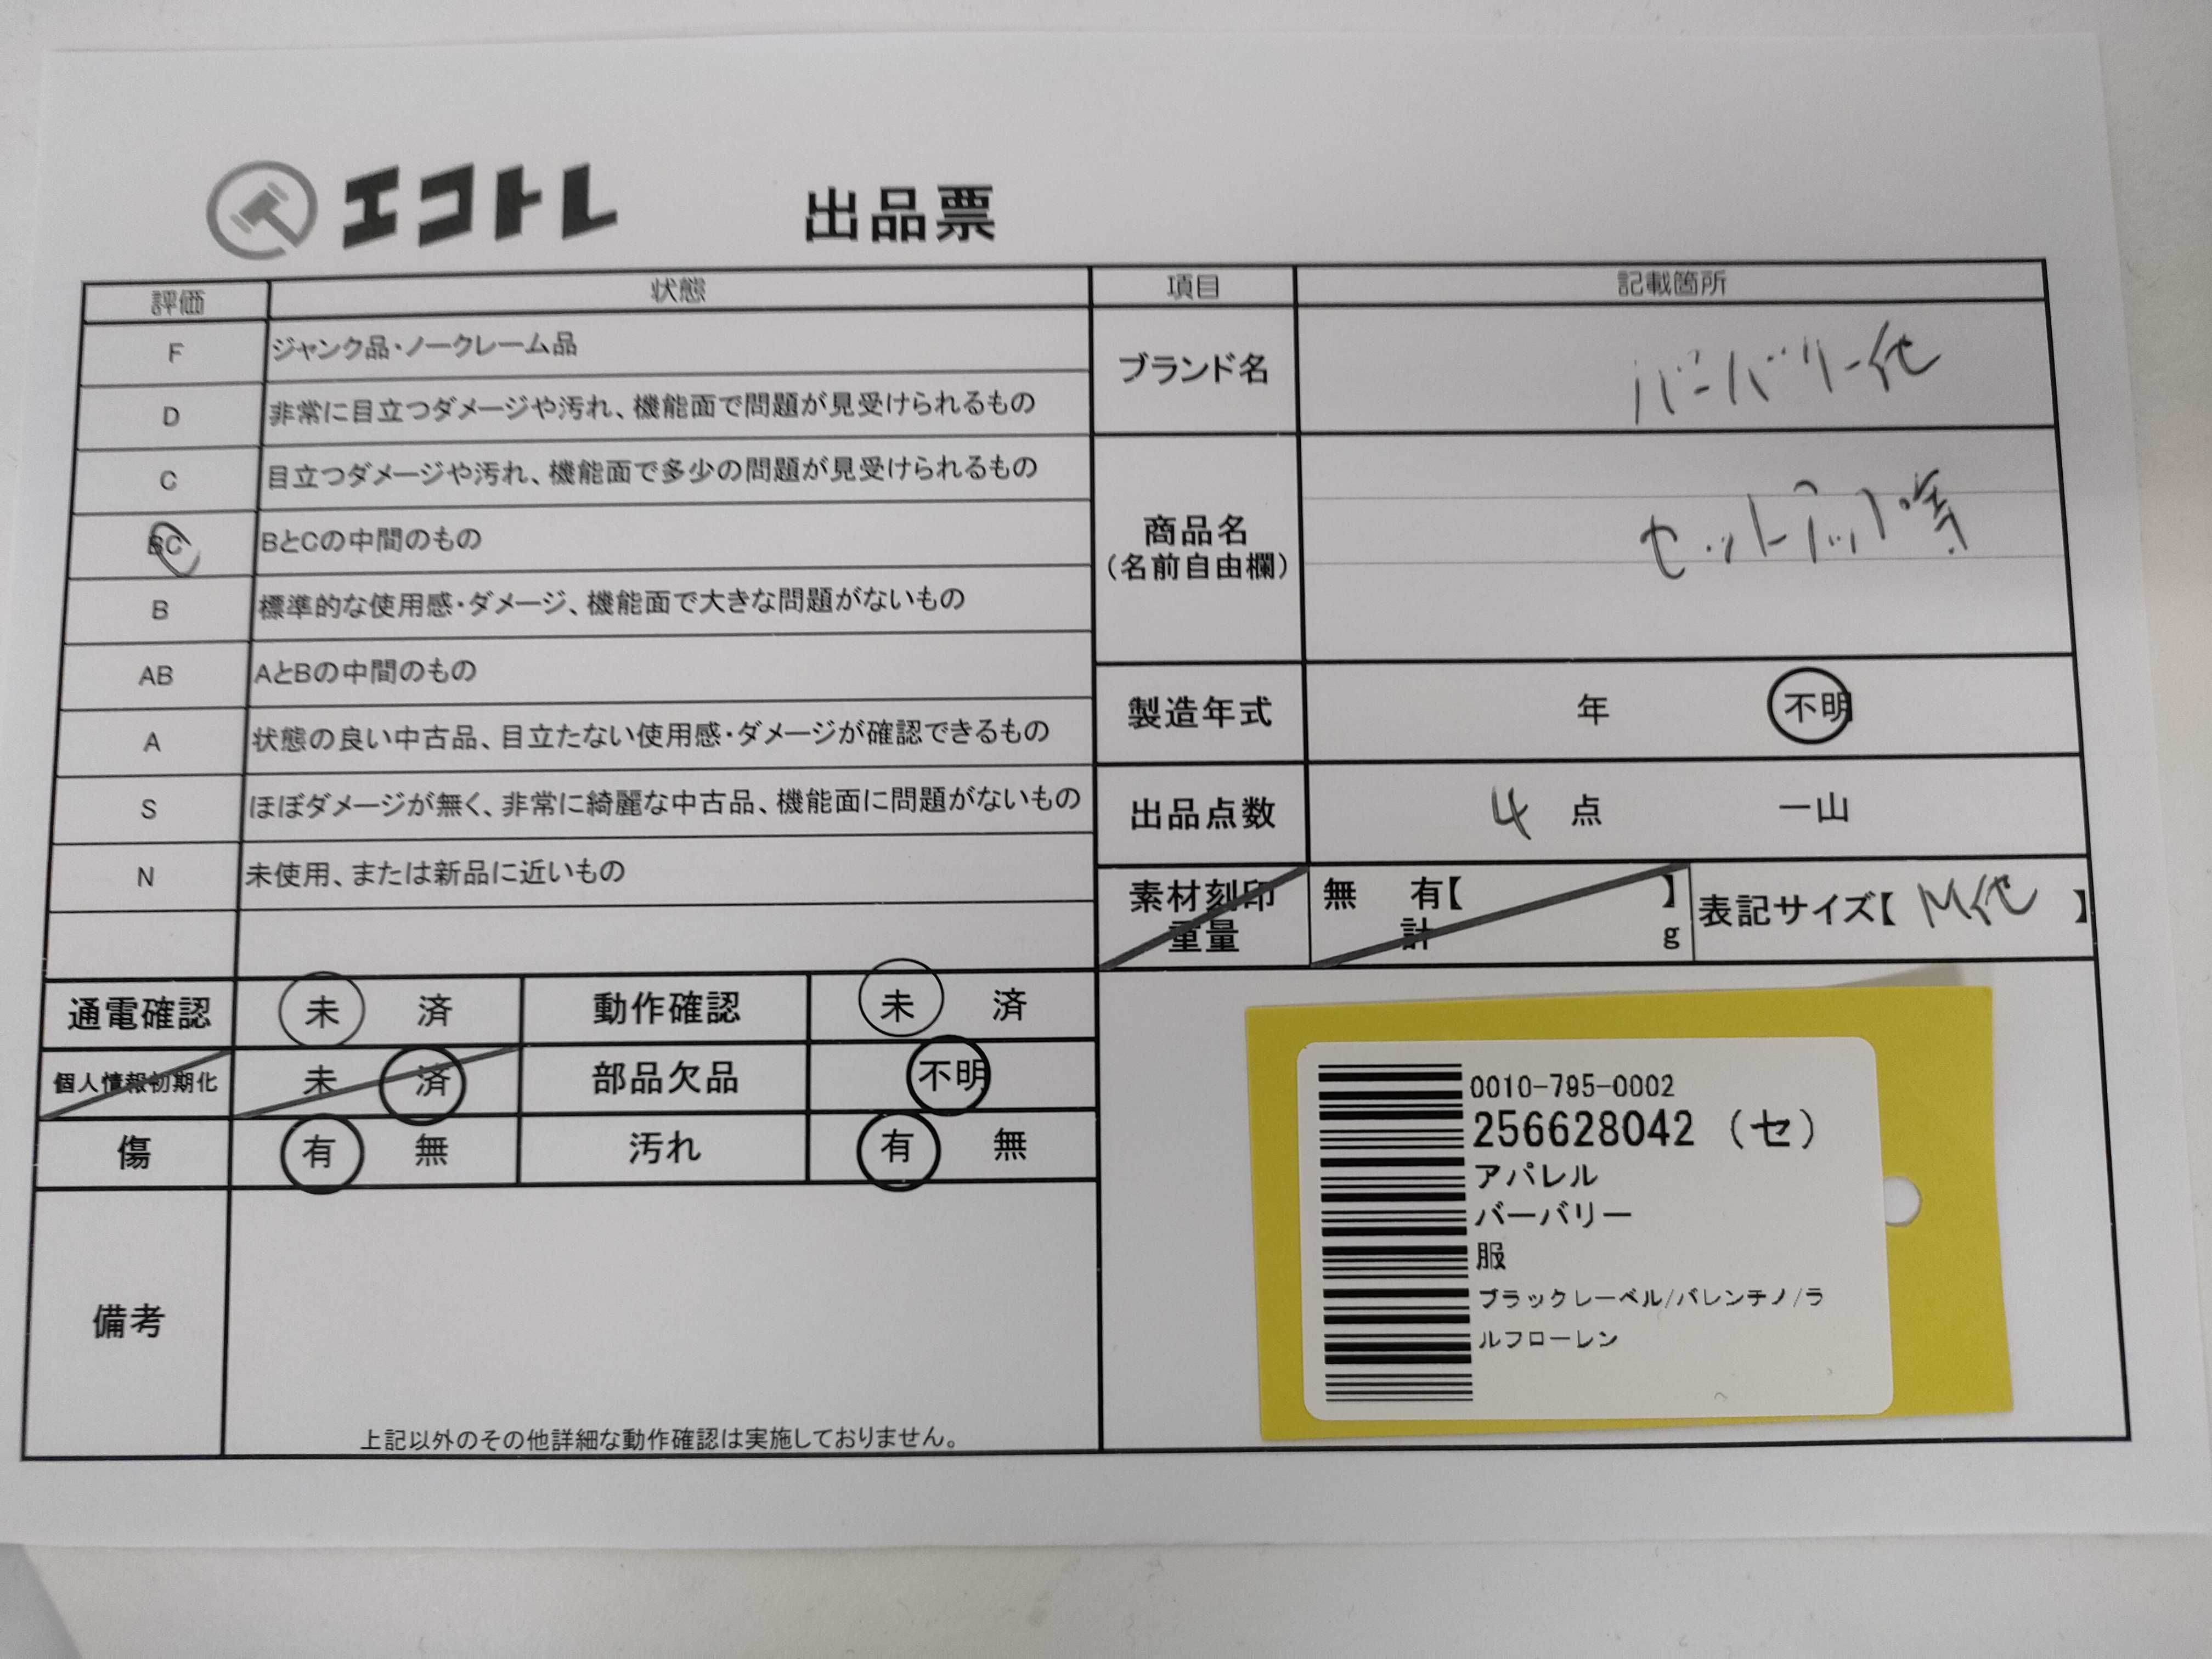 エコトレ 出品票
評価 状態 項目 記載箇所
F ジャンク品・ノークレーム品
D 非常に目立つダメージや汚れ、機能面で問題が見受けられるもの
C 目立つダメージや汚れ、機能面で多少の問題が見受けられるもの
BC BとCの中間のもの
B 標準的な使用感・ダメージ、機能面で大きな問題がないもの
AB AとBの中間のもの
A 状態の良い中古品、目立たない使用感・ダメージが確認できるもの
S ほぼダメージが無く、非常に綺麗な中古品、機能面に問題がないもの
N 未使用、または新品に近いもの
通電確認 未 済 動作確認 未 済
個人情報初期化 未 済 部品欠品 不明
傷 有 無 汚れ 有 無
備考
上記以外のその他詳細な動作確認は実施しておりません。
ブランド名 バーバリー他
商品名 セットアップ等
(名前自由欄)
製造年式 年 不明
出品点数 4 点 一山
素材刻印 無 有【 】
重量 計 g
表記サイズ【 M他 】
0010-795-0002
256628042 (セ)
アパレル
バーバリー
服
ブラックレーベル/バレンチノ/ラ
ルフローレン